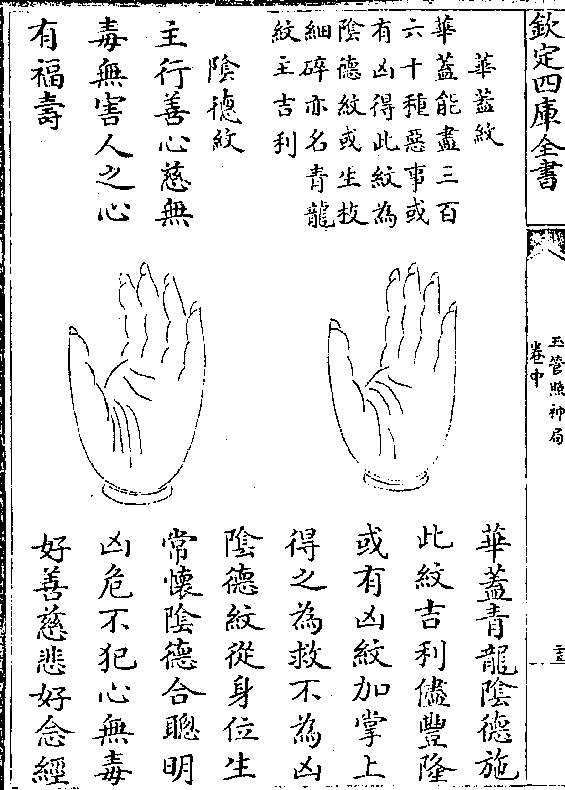 欽定四庫全書
玉管照神局
卷中
三十五
華蓋紋
華蓋能盡三百
六十種惡事或
有凶得此紋為
陰德紋或生枝
細碎亦名青龍
紋主吉利
陰德紋
主行善心慈無
毒無害人之心
有福壽
華蓋青龍陰德施
此紋吉利儘豐隆
或有凶紋加掌上
得之為救不為凶
陰德紋從身位生
常懷陰德合聰明
凶危不犯心無毒
好善慈悲好念經